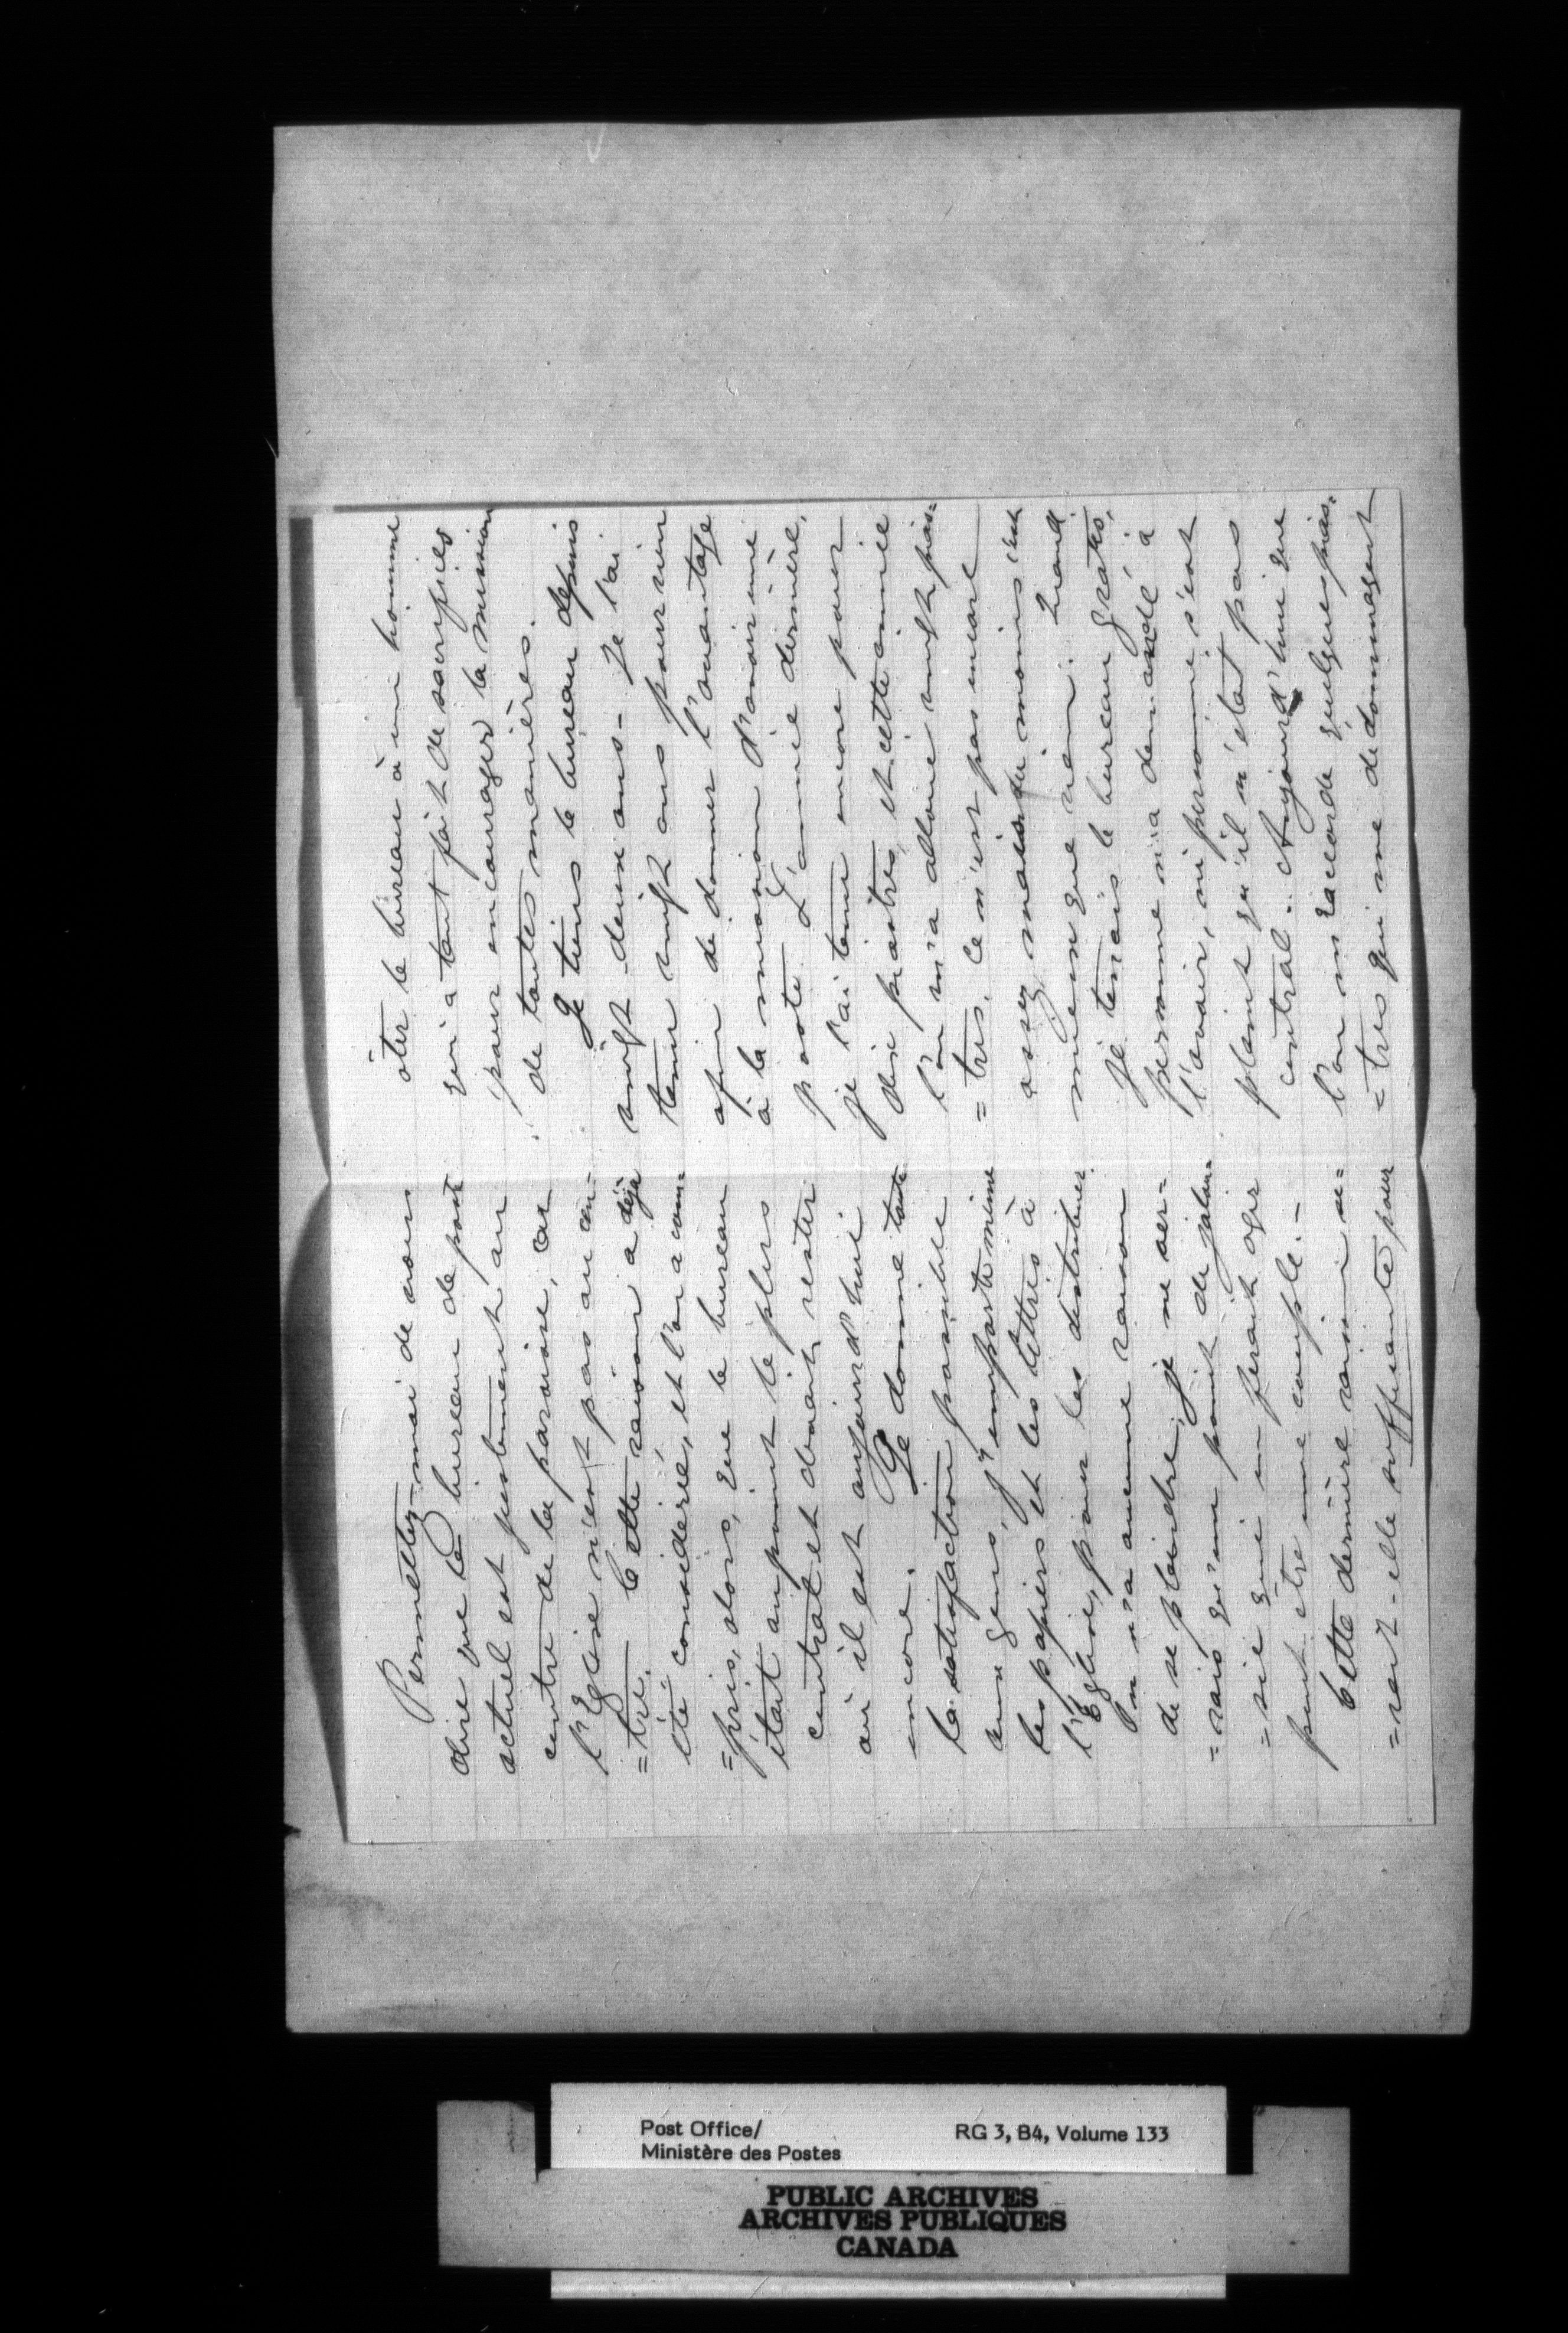 Permettez-moi de vous
dire que le bureau de poste
actuel est justement au
centre de la paroisse, car
l'Eglise n'est pas au cen-
=tre. Cette raison a déjà
été considérée, et l'on a com=
=pris, alors, que le bureau
était au point le plus
central et devait rester
où il est aujourd'hui
encore. Je donne toute
la satisfaction possible
aux gens, j'emporte même
les papiers et les lettres à
l'Eglise, pour les distribuer.
On n'a aucune raison
de se plaindre, je ne ver=
=rais qu'un point de jalou=
=sie qui en ferait agir
peut être une couple.-
Cette dernière raison se=
=rait-elle suffisante pour
ôter le bureau à un homme
qui a tant fait de sacrifices
pour encourager la mission
de toutes manières.
Je tiens le bureau depuis
vingt deux ans- Je l'ai
tenu vingt ans pour rien
afin de donner l'avantage
à la mission d'avoir une
poste. L'année dernière,
je l'ai tenu encore pour
dix piastres, et cette année
l'on m'a alloué vingt pias=
=tres. Ce n'est pas encore
assez, mais du moins c'est
mieux que rien. Quand
je tenais le bureau gratis,
personne n'a demandé à
l'avoir, ni personne s'est
plaint qu'il n'était pas
central.. Aujourd'hui que
l'on m'accorde quelques pias=
=tres qui me dédommagent
Post Office/
Ministère des Postes
RG 3, B4, Volume 133
PUBLIC ARCHIVES
ARCHIVES PUBLIQUES
CANADA